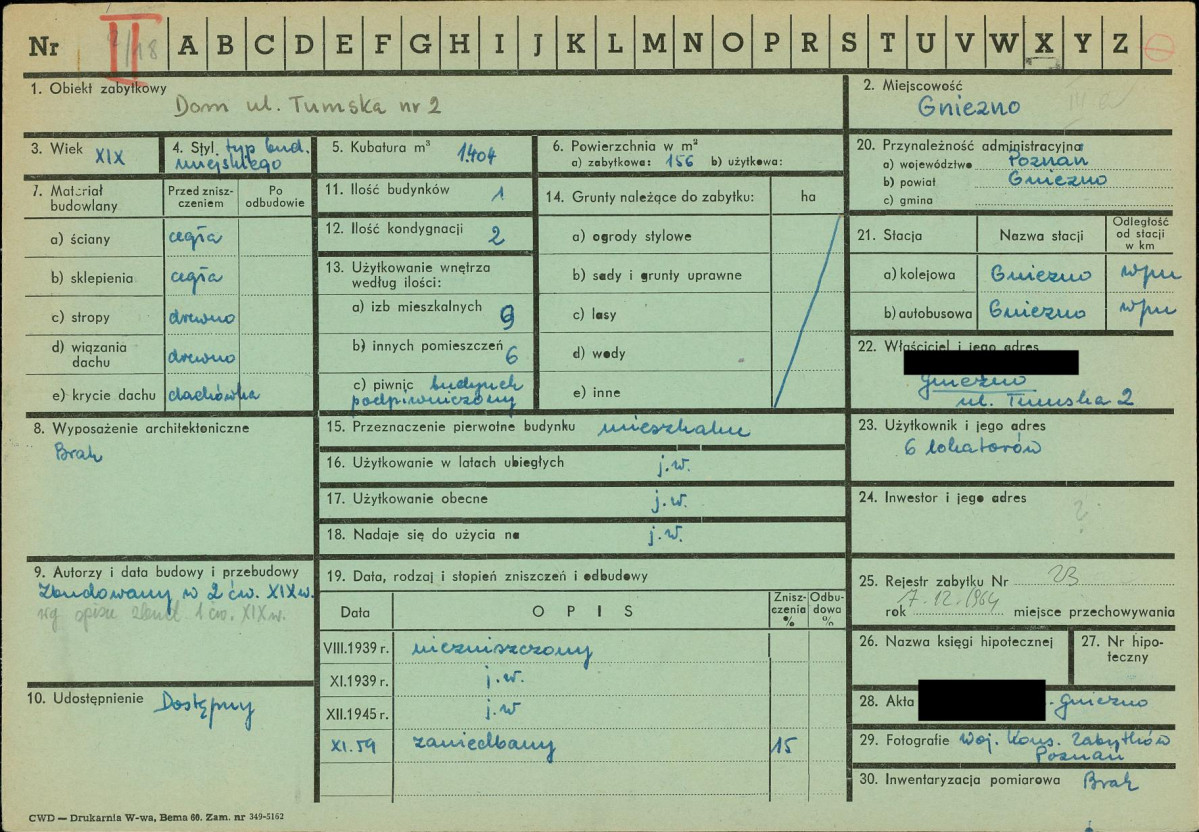 Nr II A B C D E F G H I J K L M N O P R S T U V W X Y Z
1. Obiekt zabytkowy
Dom ul. Tumska nr 2
2. Miejscowość
Gniezno
3. Wiek XIX
4. Styl. typ bud.
miejskiego
5. Kubatura m³ 1.404
6. Powierzchnia w m²
a) zabytkowa: 156 b) użytkowa:
20. Przynależność administracyjna
a) województwo Poznań
b) powiat Gniezno
c) gmina
7. Materiał
budowlany
Przed znisz-
czeniem
Po
odbudowie
a) ściany cegła
b) sklepienia cegła
c) stropy drewno
d) wiązania
dachu drewno
e) krycie dachu dachówka
11. Ilość budynków 1
12. Ilość kondygnacji 2
13. Użytkowanie wnętrza
według ilości:
a) izb mieszkalnych 9
b) innych pomieszczeń 6
c) piwnic budynek
podpiwniczony
14. Grunty należące do zabytku: ha
a) ogrody stylowe
b) sady i grunty uprawne
c) lasy
d) wody
e) inne
21. Stacja Nazwa stacji
Odległość
od stacji
w km
a) kolejowa Gniezno wpm
b) autobusowa Gniezno wpm
22. Właściciel i jego adres
Gniezno
ul. Tumska 2
8. Wyposażenie architektoniczne
Brak
15. Przeznaczenie pierwotne budynku mieszkalne
16. Użytkowanie w latach ubiegłych j.w.
17. Użytkowanie obecne j.w.
18. Nadaje się do użycia na j.w.
23. Użytkownik i jego adres
6 lokatorów
24. Inwestor i jego adres
?
9. Autorzy i data budowy i przebudowy
Zbudowany w 2 ćw. XIX w.
wg opisu zbud. 1 ćw. XIX w.
10. Udostępnienie Dostępny
19. Data, rodzaj i stopień zniszczeń i odbudowy
Data OPIS
Znisz-
czenia
%
Odbu-
dowa
%
VIII.1939 r. niezniszczony
XI.1939 r. j.w.
XII.1945 r. j.w
XI.59 zaniedbany 15
25. Rejestr zabytku Nr 23
rok 7.12.1964 miejsce przechowywania
26. Nazwa księgi hipotecznej
27. Nr hipo-
teczny
28. Akta Gniezno
29. Fotografie Woj. Kons. Zabytków
Poznań
30. Inwentaryzacja pomiarowa Brak
CWD — Drukarnia W-wa, Bema 60. Zam. nr 349-5162